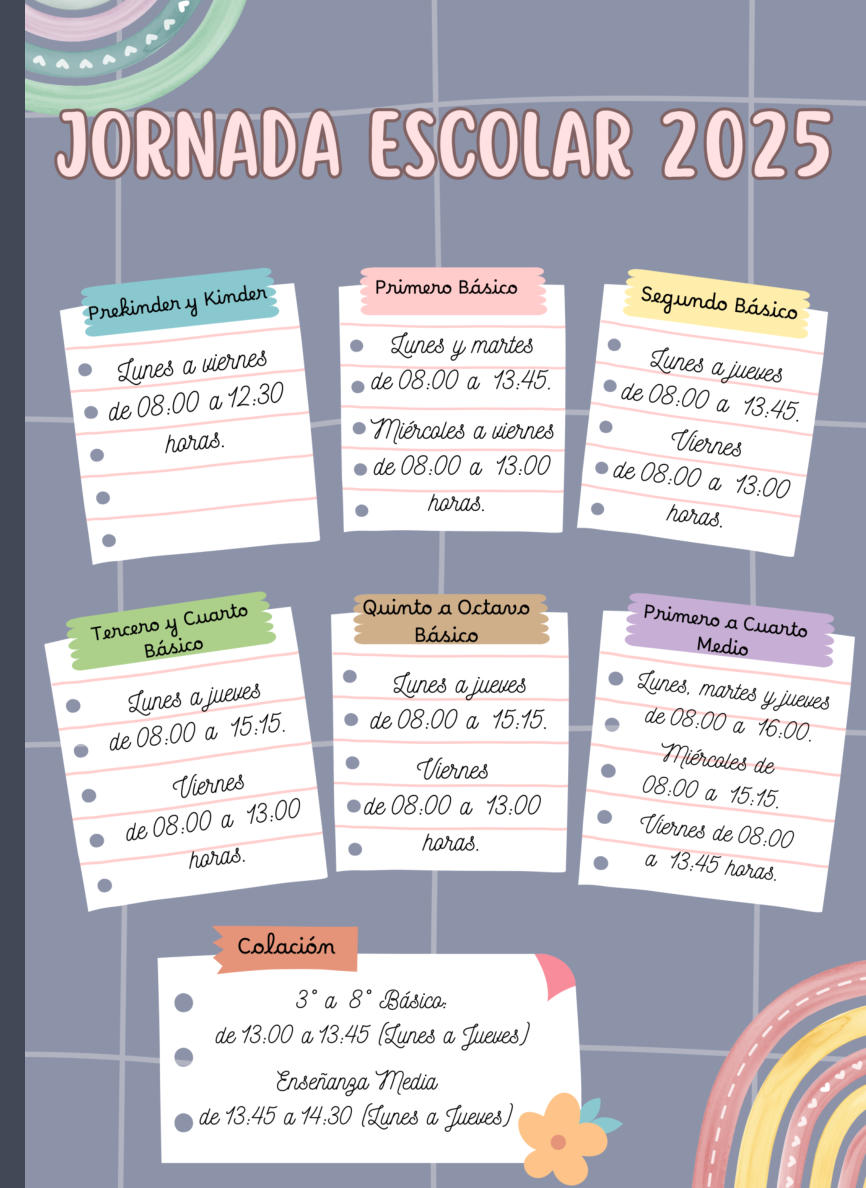 JORNADA ESCOLAR 2025
Prekinder y Kinder
Lunes a viernes
de 08:00 a 12:30
horas.
Primero Básico
Lunes y martes
de 08:00 a 13:45.
Miércoles a viernes
de 08:00 a 13:00
horas.
Segundo Básico
Lunes a jueves
de 08:00 a 13:45.
Viernes
de 08:00 a 13:00
horas.
Tercero y Cuarto
Básico
Lunes a jueves
de 08:00 a 15:15.
Viernes
de 08:00 a 13:00
horas.
Quinto a Octavo
Básico
Lunes a jueves
de 08:00 a 15:15.
Viernes
de 08:00 a 13:00
horas.
Primero a Cuarto
Medio
Lunes, martes y jueves
de 08:00 a 16:00.
Miércoles de
08:00 a 15:15.
Viernes de 08:00
a 13:45 horas.
Colación
3° a 8° Básico:
de 13:00 a 13:45 (Lunes a Jueves)
Enseñanza Media
de 13:45 a 14:30 (Lunes a Jueves)